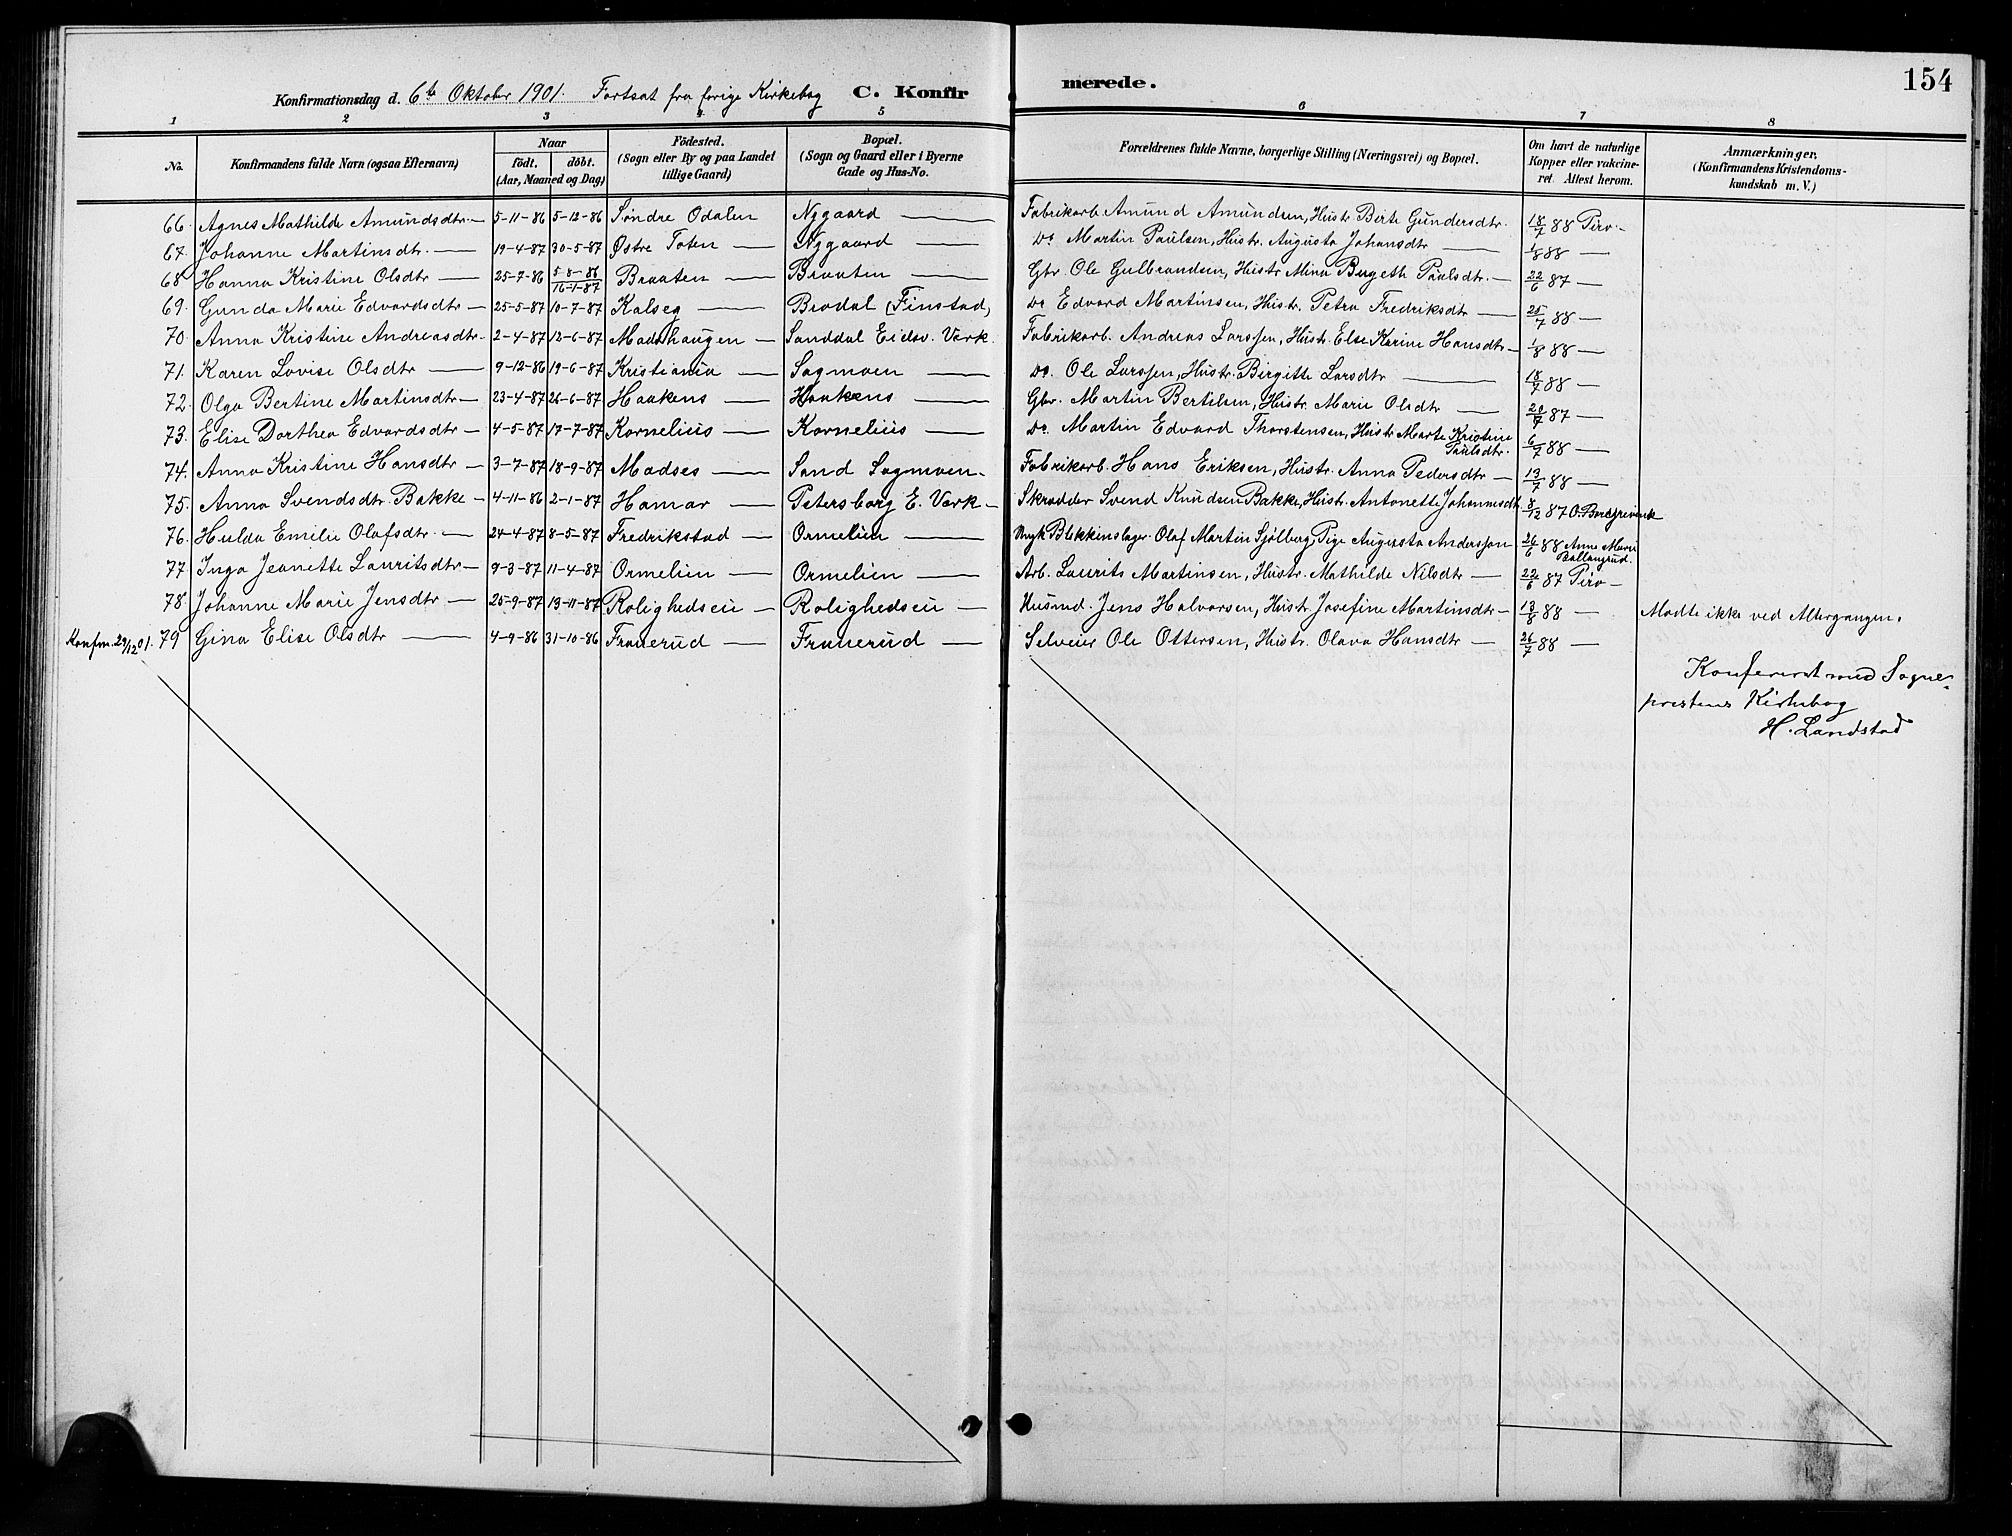 154
Konfirmationsdag d. 6te Oktober 1901. Fortsat fra forige Kirkebog C. Konfirmerede.
1 2 3 4 5 6 7 8
No. Konfirmandens fulde Navn (ogsaa Efternavn) Naar født, døbt. (Aar, Maaned og Dag) Födested. (Sogn eller By og paa Landet tillige Gaard) Bopæl. (Sogn og Gaard eller i Byerne Gade og Hus-No. Forældrenes fulde Navne, borgerlige Stilling (Næringsvei) og Bopæl. Om havt de naturlige Kopper eller vakcineret. Attest herom. Anmærkninger. (Konfirmandens Kristendomskundskab m. V.)
66. Agnes Mathilde Amundsdtr. 5-11-86 5-12-86 Søndre Odalen Nygaard Fabrikarb. Amund Amundsen, Hustr. Berte Gundersdtr. 18/7 88 Piro
67. Johanne Martinsdtr. 19-4-87 30-5-87 Østre Toten Nygaard Do Martin Paulsen, Hustr. Augusta Johansdtr 1/8 88
68. Hanna Kristine Olsdtr 25-7-86 5-8-86 16-1-87 Braaten Braaten Gbr. Ole Gulbrandsen, Hustr Mina Birgeth Paulsdtr. 22/6 87
69. Gunda Marie Edvardsdtr 25-5-87 10-7-87 Kalseg Brodal (Finstad) Do Edvard Martinsen, Hustr. Petra Fredriksdtr 25/7 88
70. Anna Kristine Andreasdtr. 2-4-87 12-6-87 Madshaugen Sanddal Eidsv. Verk. Fabrikarb. Andreas Larssen, Hustr. Else Karine Hansdtr 1/8 88
71. Karen Lovise Olsdtr 9-12-86 19-6-87 Kristiania Sagmoen Do. Ole Larssen, Hustr. Birgitte Larsdtr 18/7 88
72. Olga Bertine Martinsdtr 23-4-87 26-6-87 Haakens Haakens Gbr. Martin Bertelsen, Hustr. Marie Olsdtr 20/7 87
73. Elise Dorthea Edvardsdtr 4-5-87 17-7-87 Kornelius Kornelius Do. Martin Edvard Thorstensen, Hustr. Marte Kristine Paulsdtr. 6/7 88
74. Anna Kristine Hansdtr 3-7-87 18-9-87 Madses Sand Sagmoen Fabrikarb. Hans Eriksen, Hustr. Anna Pedersdtr 13/7 88
75. Anna Svendsdtr. Bakke 4-11-86 2-1-87 Hamar Petersborg E. Verk Skrædder Svend Knudsen Bakke, Hustr. Antonette Johannesdtr /12 87 O. Borchgrevink
76. Hulda Emilie Olafsdtr. 24-4-87 8-5-87 Fredrikstad Ormelien Ungk Blikkenslager Olaf Martin Sjølberg, Pige Augusta Anderssen 26/6 88 Anne Marie Ballangrud.
77 Inga Jeanette Lauritsdtr 9-3-87 11-4-87 Ormelien Ormelien Arb. Laurits Martinsen, Hustr. Mathilde Nilsdtr 22/6 87 Piro
78. Johanne Marie Jensdtr 25-9-87 13-11-87 Rolighedseie Rolighedseie Husmd. Jens Halvorsen, Hustr. Josefine Martinsdtr 13/8 88 Mødte ikke ved Altergangen.
Konfirm. 29/12 01. 79 Gina Elise Olsdtr 4-9-86 31-10-86 Franerud Franerud Selveier Ole Ottersen, Hustr. Olava Hansdtr 26/7 88
Konfereret med Sogne-
prestens Kirkebog
H. Landstad